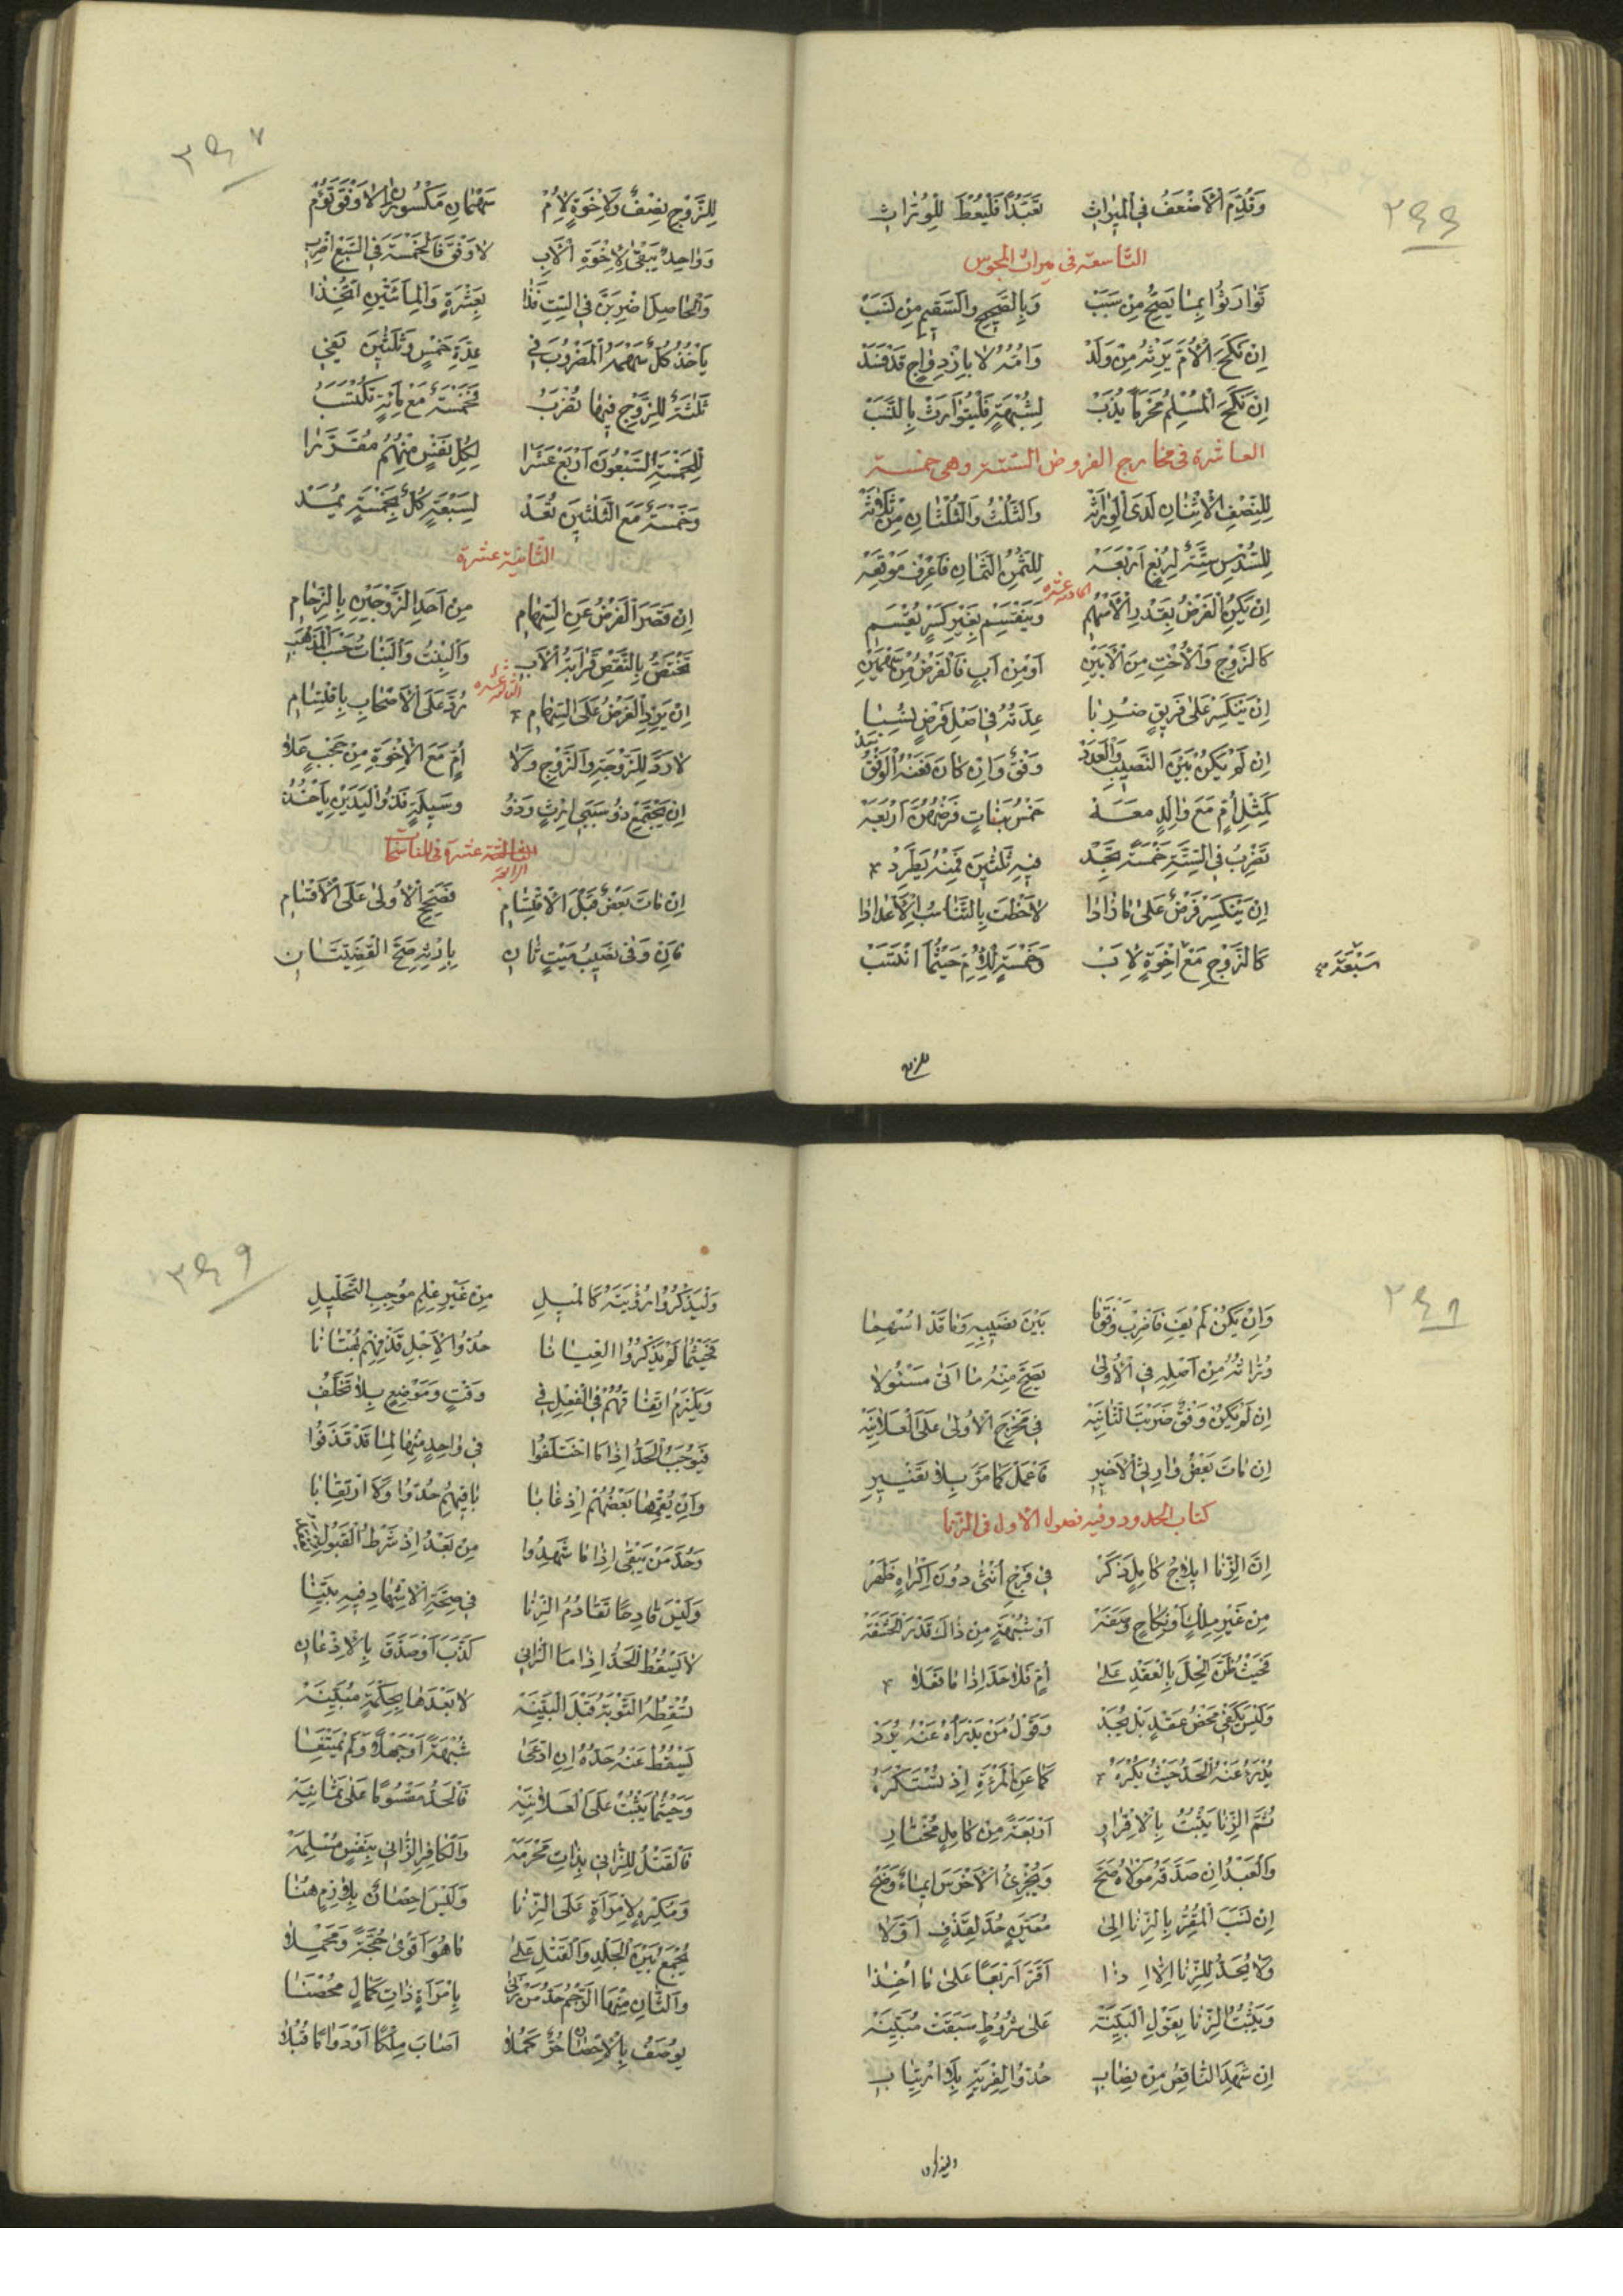 وَقُدِّمَ الْأَضْعَفُ فِي الْمِيرَاثِ تَعَبُّدًا فَلْيُعْطَ لِلْوُرَّاثِ
التاسعة في ميراث المجوس
تَوَارَثُوا بِمَا يَصِحُّ مِنْ سَبَبْ وَبِالصَّحِيحِ وَالسَّقِيمِ مِنْ نَسَبْ
إِنْ نَكَحَ الْأُمَّ يَرِثْهُ مِنْ وَلَدْ وَأُمُّهُ لَا بِازْدِوَاجٍ قَدْ فَسَدْ
إِنْ نَكَحَ الْمُسْلِمُ مَحْرَمًا يُذَبْ لِشُبْهَةٍ فَلْيُتَوَارَثْ بِالنَّسَبْ
العاشرة في مخارج الفروض الستة وهي خمسة
لِلنِّصْفِ الْإِثْنَانِ لَدَى الْوِرَاثَةْ وَالثُّلْثُ وَالثُّلْثَانِ مِنْ ثَلَاثَةْ
لِلسُّدْسِ سِتَّةٌ لِرُبْعٍ أَرْبَعَةْ لِلثُّمْنِ الثَّمَانِ فَاعْرِفْ مَوْقِعَهْ
الحادية عشرة
إِنْ يَكُنِ الْفَرْضُ بِقَدْرِ الْأَسْهُمِ وَيَنْقَسِمْ بِغَيْرِ كَسْرٍ يُقْسَمِ
كَالزَّوْجِ وَالْأُخْتِ مِنَ الْأَبَيْنِ أَوْ مِنْ أَبٍ فَالْفَرْضُ مِنْ سَهْمَيْنِ
إِنْ يَنْكَسِرْ عَلَى فَرِيقٍ ضُرِبَا عِدَّتُهُ فِي أَصْلِ فَرْضٍ نُسِبَا
إِنْ لَمْ يَكُنْ بَيْنَ النَّصِيبِ وَالْعَدَدْ وَفْقٌ وَإِنْ كَانَ فَمِنْهُ الْوَفْقُ
كَمِثْلِ أُمٍّ مَعَ وَالِدٍ مَعَهْ خَمْسُ بَنَاتٍ فَرْضُهُنَّ أَرْبَعَةْ
تَضْرِبُ فِي السِّتَّةِ خَمْسَةً تَجِدْ فِيهِ ثَلٰثِينَ فَمِنْهُ يَطَّرِدْ
إِنْ يَنْكَسِرْ فَرْضٌ عَلَى مَا زَادَا لَاحَظْتَ بِالتَّنَاسُبِ الْأَعْدَادَا
كَالزَّوْجِ مَعْ إِخْوَةٍ لِأَبْ وَخَمْسَةٍ لِلْأُمِّ حَيْثُمَا انْتَسَبْ
سَبْعَةٍ
للزوج
٣٤٧
لِلزَّوْجِ نِصْفٌ وَلِإِخْوَةٍ لِأُمْ سَهْمَانِ مَكْسُورَانِ لَا وَفْقَ تَؤُمْ
وَوَاحِدٌ يَبْقَى لِإِخْوَةِ الْأَبِ لَا وَفْقَ فَالْخَمْسَةَ فِي السَّبْعِ اضْرِبِ
وَالْحَاصِلَ اضْرِبَنَّ فِي السِّتِّ فَذَا بِعَشْرَةٍ وَالْمِائَتَيْنِ اتُّخِذَا
يَأْخُذُ كُلٌّ سَهْمَهُ الْمَضْرُوبَ فِي عِدَّةِ خَمْسٍ وَثَلٰثِينَ تَفِي
ثَلٰثَةٌ لِلزَّوْجِ فِيهَا تُضْرَبُ فَخَمْسَةٌ مَعْ مِائَةٍ تُكْتَسَبُ
لِلْخَمْسَةِ السَّبْعُونَ أَرْبَعْ عَشَرَا لِكُلِّ نَفْسٍ مِنْهُمُ مُقَرَّرَا
وَخَمْسَةٌ مَعَ الثَّلٰثِينَ تُعَدْ لِسَبْعَةٍ كُلٌّ بِخَمْسَةٍ يُمَدْ
الثانية عشرة
إِنْ قَصَرَ الْفَرْضُ عَنِ السِّهَامِ مِنْ أَحَدِ الزَّوْجَيْنِ بِالزِّحَامِ
تَخْتَصُّ بِالنَّقْصِ قَرَابَةُ الْأَبِ وَالْبِنْتُ وَالْبَنَاتُ حَسْبَ الْمَذْهَبِ
الثالثة عشرة
إِنْ يَزِدِ الْفَرْضُ عَلَى السِّهَامِ رُدَّ عَلَى الْأَصْحَابِ بِاقْتِسَامِ
لَا رَدَّ لِلزَّوْجَةِ وَالزَّوْجِ وَلَا أُمٍّ مَعَ الْإِخْوَةِ مِنْ حَجْبٍ عَلَا
إِنْ يَجْتَمِعْ ذُو سَبَبَيْ إِرْثٍ وَذُو وَسِيلَةٍ فَذُو الْيَدَيْنِ يَأْخُذُ
الرابعة عشرة في المناسخات
إِنْ مَاتَ بَعْضٌ قَبْلَ الْاقْتِسَامِ فَصَحِّحِ الْأُولَى عَلَى الْأَقْسَامِ
فَإِنْ وَفَى نَصِيبُ مَيْتٍ ثَانِ بِإِرْثِهِ صَحَّ الْقَضِيَّتَانِ
وَإِنْ يَكُنْ لَمْ يَفِ فَاضْرِبْ وَفْقَ مَا بَيْنَ نَصِيبِهِ وَمَا قَدْ أُسْهِمَا
وُرَّاثُهُ مِنْ أَصْلِهِ فِي الْأُولَى يَصِحَّ مِنْهُ مَا أَتَى مَسْئُولَا
إِنْ لَمْ يَكُنْ وَفْقٌ ضَرَبْتَ الثَّانِيَةْ فِي مَخْرَجِ الْأُولَى عَلَى الْعَلَانِيَةْ
إِنْ مَاتَ بَعْضُ وَارِثِي الْأَخِيرِ فَاعْمَلْ كَمَا مَرَّ بِلَا تَغْيِيرِ
كتاب الحدود وفيه فصول الاول في الزنا
إِنَّ الزِّنَا إِيلَاجُ كَامِلٍ ذَكَرْ فِي فَرْجِ أُنْثَى دُونَ إِكْرَاهٍ ظَهَرْ
مِنْ غَيْرِ مِلْكٍ أَوْ نِكَاحٍ أَوْ شُبْهَةٍ مِنْ ذَاكَ قَدْرَ الْحَشَفَةْ
فَحَيْثُ ظَنَّ الْحِلَّ بِالْعَقْدِ عَلَى أُمٍّ فَلَا حَدَّ إِذَا مَا فَعَلَا
وَلَيْسَ يَكْفِي مَحْضُ عَقْدٍ بَلْ يُحَدْ وَقَوْلُ مَنْ يَدْرَأُهُ عَنْهُ يُرَدْ
يُدْرَءُ عَنْهُ الْحَدُّ حَيْثُ يُكْرَهُ كَمَا عَنِ الْمَرْءَةِ إِذْ تُسْتَكْرَهُ
ثُمَّ الزِّنَا يَثْبُتُ بِالْإِقْرَارِ أَرْبَعَةً مِنْ كَامِلٍ مُخْتَارِ
وَالْعَبْدُ إِنْ صَدَّقَهُ مَوْلَاهُ صَحْ وَيُجْزِئُ الْأَخْرَسَ إِيمَاءٌ وَضَحْ
إِنْ نَسَبَ الْمُقِرُّ بِالزِّنَا إِلَى مُعَيَّنٍ حُدَّ لِقَذْفٍ أَوَّلَا
وَلَا يُحَدُّ لِلزِّنَا إِلَّا إِذَا أَقَرَّ أَرْبَعًا عَلَى مَا أُخِذَا
وَيَثْبُتُ الزِّنَا بِقَوْلِ الْبَيِّنَةْ عَلَى شُرُوطٍ سَبَقَتْ مُبَيَّنَةْ
إِنْ شَهِدَ النَّاقِصُ مِنْ نِصَابِ حُدُّوا لِفِرْيَةٍ بِلَا ارْتِيَابِ
وليذكروا
٣٤٩
وَلْيَذْكُرُوا رُؤْيَتَهُ كَالْمِيلِ مِنْ غَيْرِ عِلْمِ مُوجِبِ التَّحْلِيلِ
فَحَيْثُمَا لَمْ يَذْكُرُوا الْعِيَانَا حُدُّوا لِأَجْلِ قَذْفِهِمْ بُهْتَانَا
وَيَلْزَمُ اتِّفَاقُهُمْ فِي الْفِعْلِ فِي وَقْتٍ وَمَوْضِعٍ بِلَا تَخَلُّفِ
فَيُوجَبُ الْحَدُّ إِذَا مَا اخْتَلَفُوا فِي وَاحِدٍ مِنْهَا لِمَا قَدْ قَذَفُوا
وَإِنْ يُقِمْهَا بَعْضُهُمْ إِذْ غَابَا بَاقِيهِمُ حُدُّوا وَلَا ارْتِقَابَا
وَحُدَّ مَنْ يَبْقَى إِذَا مَا شَهِدُوا مِنْ بَعْدُ إِذْ شَرْطُ الْقَبُولِ
وَلَيْسَ قَادِحًا تَقَادُمُ الزِّنَا فِي صِحَّةِ الْإِشْهَادِ فِيهِ بَيِّنَا
لَا يَسْقُطُ الْحَدُّ إِذَا مَا الزَّانِي كَذَّبَ أَوْ صَدَّقَ بِالْإِذْعَانِ
تُسْقِطُهُ التَّوْبَةُ قَبْلَ الْبَيِّنَةْ لَا بَعْدَهَا بِحِكْمَةٍ مُبَيَّنَةْ
يَسْقُطُ عَنْهُ حَدُّهُ إِنِ ادَّعَى شُبْهَةً أَوْ جَهْلًا
وَحَيْثُمَا يَثْبُتْ عَلَى الْعَلَانِيَةْ فَالْحَدُّ مَقْسُومًا عَلَى ثَمَانِيَةْ
فَالْقَتْلُ لِلزَّانِي بِذَاتِ مَحْرَمَةْ وَالْكَافِرِ الزَّانِي بِنَفْسٍ مُسْلِمَةْ
وَمُكْرِهٍ لِامْرَأَةٍ عَلَى الزِّنَا وَلَيْسَ إِحْصَانٌ بِلَازِمٍ هُنَا
يُجْمَعُ بَيْنَ الْجَلْدِ وَالْقَتْلِ عَلَى مَا هُوَ أَقْوَى حُجَّةً وَمَحْمِلَا
وَالثَّانِ مِنْهَا الرَّجْمُ حَدُّ مَنْ زَنَى بِامْرَأَةٍ ذَاتِ كَمَالٍ مُحْصَنَا
يُوصَفُ بِالْإِحْصَانِ حُرٌّ كَمُلَا أَصَابَ مِلْكًا أَوْ دَوَامًا قُبُلَا